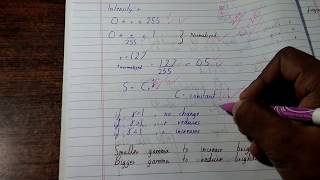 Intensity
0 255
0 1 } Normalized
r = 127
normalized = 127/255 = 0.5
S = C
C = constant
if γ=1 , no change
if γ>1 , reduces
if γ<1 , increases
Smaller gamma to increase
Bigger gamma to reduce